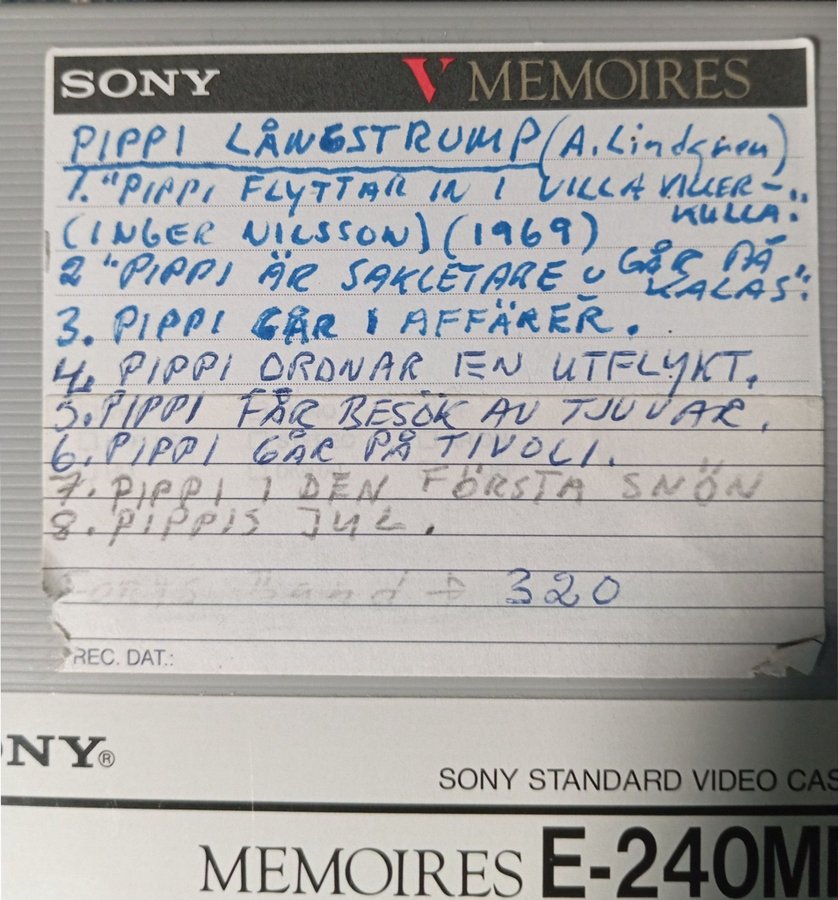 SONY V MEMOIRES
PIPPI LÅNGSTRUMP (A. Lindgren)
1. "PIPPI FLYTTAR IN I VILLA VILLER-
KULLA."
(INGER NILSSON) (1969)
2 "PIPPI ÄR SAKLETARE o GÅR PÅ
KALAS".
3. PIPPI GÅR I AFFÄRER.
4. PIPPI ORDNAR EN UTFLYKT.
5. PIPPI FÅR BESÖK AV TJUVAR.
6. PIPPI GÅR PÅ TIVOLI.
7. PIPPI I DEN FÖRSTA SNÖN
8. PIPPIS JUL.
Band → 320
REC. DAT.:
NY®
SONY STANDARD VIDEO CAS
MEMOIRES E-240M